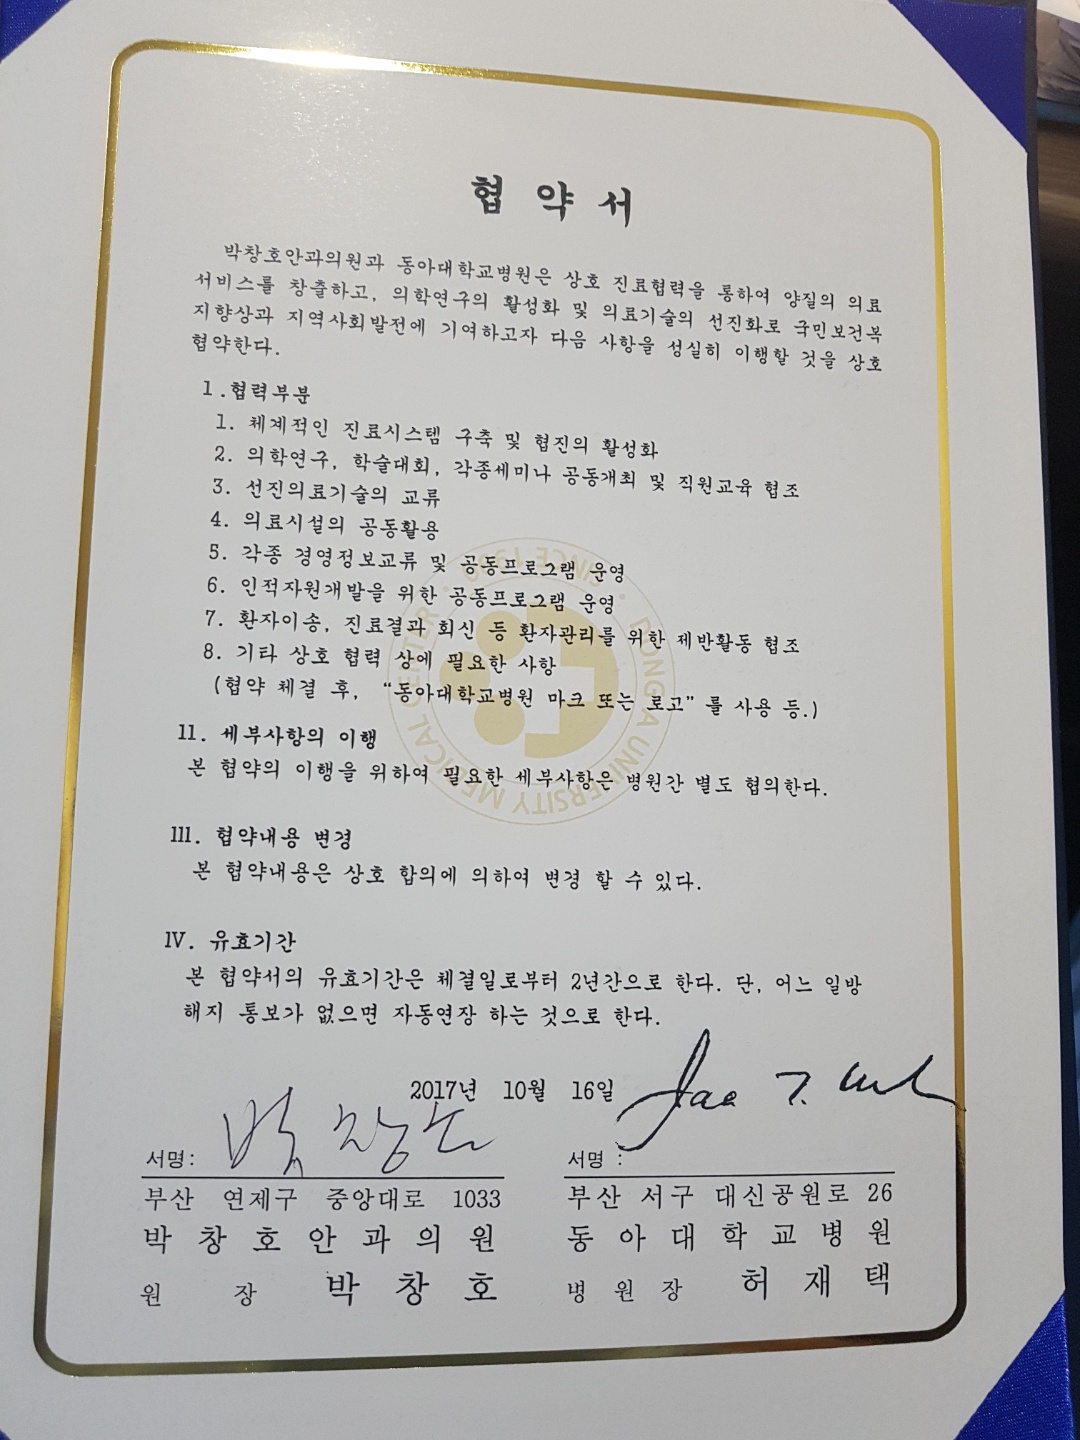 협 약 서
박창호안과의원과 동아대학교병원은 상호 진료협력을 통하여 양질의 의료
서비스를 창출하고, 의학연구의 활성화 및 의료기술의 선진화로 국민보건복
지향상과 지역사회발전에 기여하고자 다음 사항을 성실히 이행할 것을 상호
협약한다.
Ⅰ.협력부분
1. 체계적인 진료시스템 구축 및 협진의 활성화
2. 의학연구, 학술대회, 각종세미나 공동개최 및 직원교육 협조
3. 선진의료기술의 교류
4. 의료시설의 공동활용
5. 각종 경영정보교류 및 공동프로그램 운영
6. 인적자원개발을 위한 공동프로그램 운영
7. 환자이송, 진료결과 회신 등 환자관리를 위한 제반활동 협조
8. 기타 상호 협력 상에 필요한 사항
(협약 체결 후, “동아대학교병원 마크 또는 로고”를 사용 등.)
Ⅱ. 세부사항의 이행
본 협약의 이행을 위하여 필요한 세부사항은 병원간 별도 협의한다.
Ⅲ. 협약내용 변경
본 협약내용은 상호 합의에 의하여 변경 할 수 있다.
Ⅳ. 유효기간
본 협약서의 유효기간은 체결일로부터 2년간으로 한다. 단, 어느 일방
해지 통보가 없으면 자동연장 하는 것으로 한다.
2017년 10월 16일
서명: 박창호
부산 연제구 중앙대로 1033
박창호안과의원
원 장 박 창 호
서명 : Jae T.
부산 서구 대신공원로 26
동아대학교병원
병 원 장 허 재 택
DONG-A UNIVERSITY MEDICAL CENTER · SINCE 1990 ·